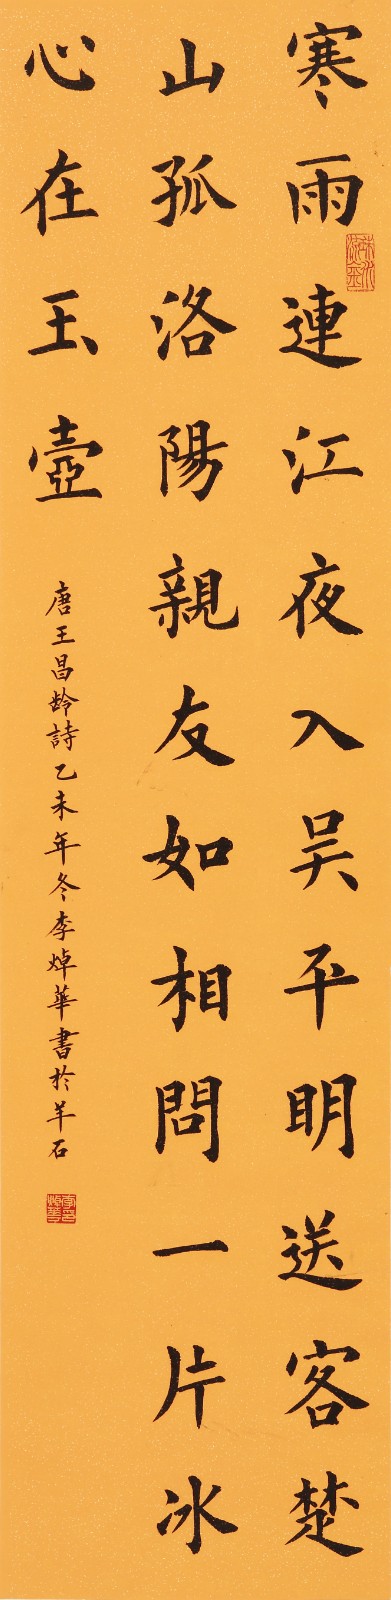 寒雨連江夜入吴平明送客楚
山孤洛陽親友如相問一片冰
心在玉壺
唐王昌龄詩乙未年冬李焯華書於羊石